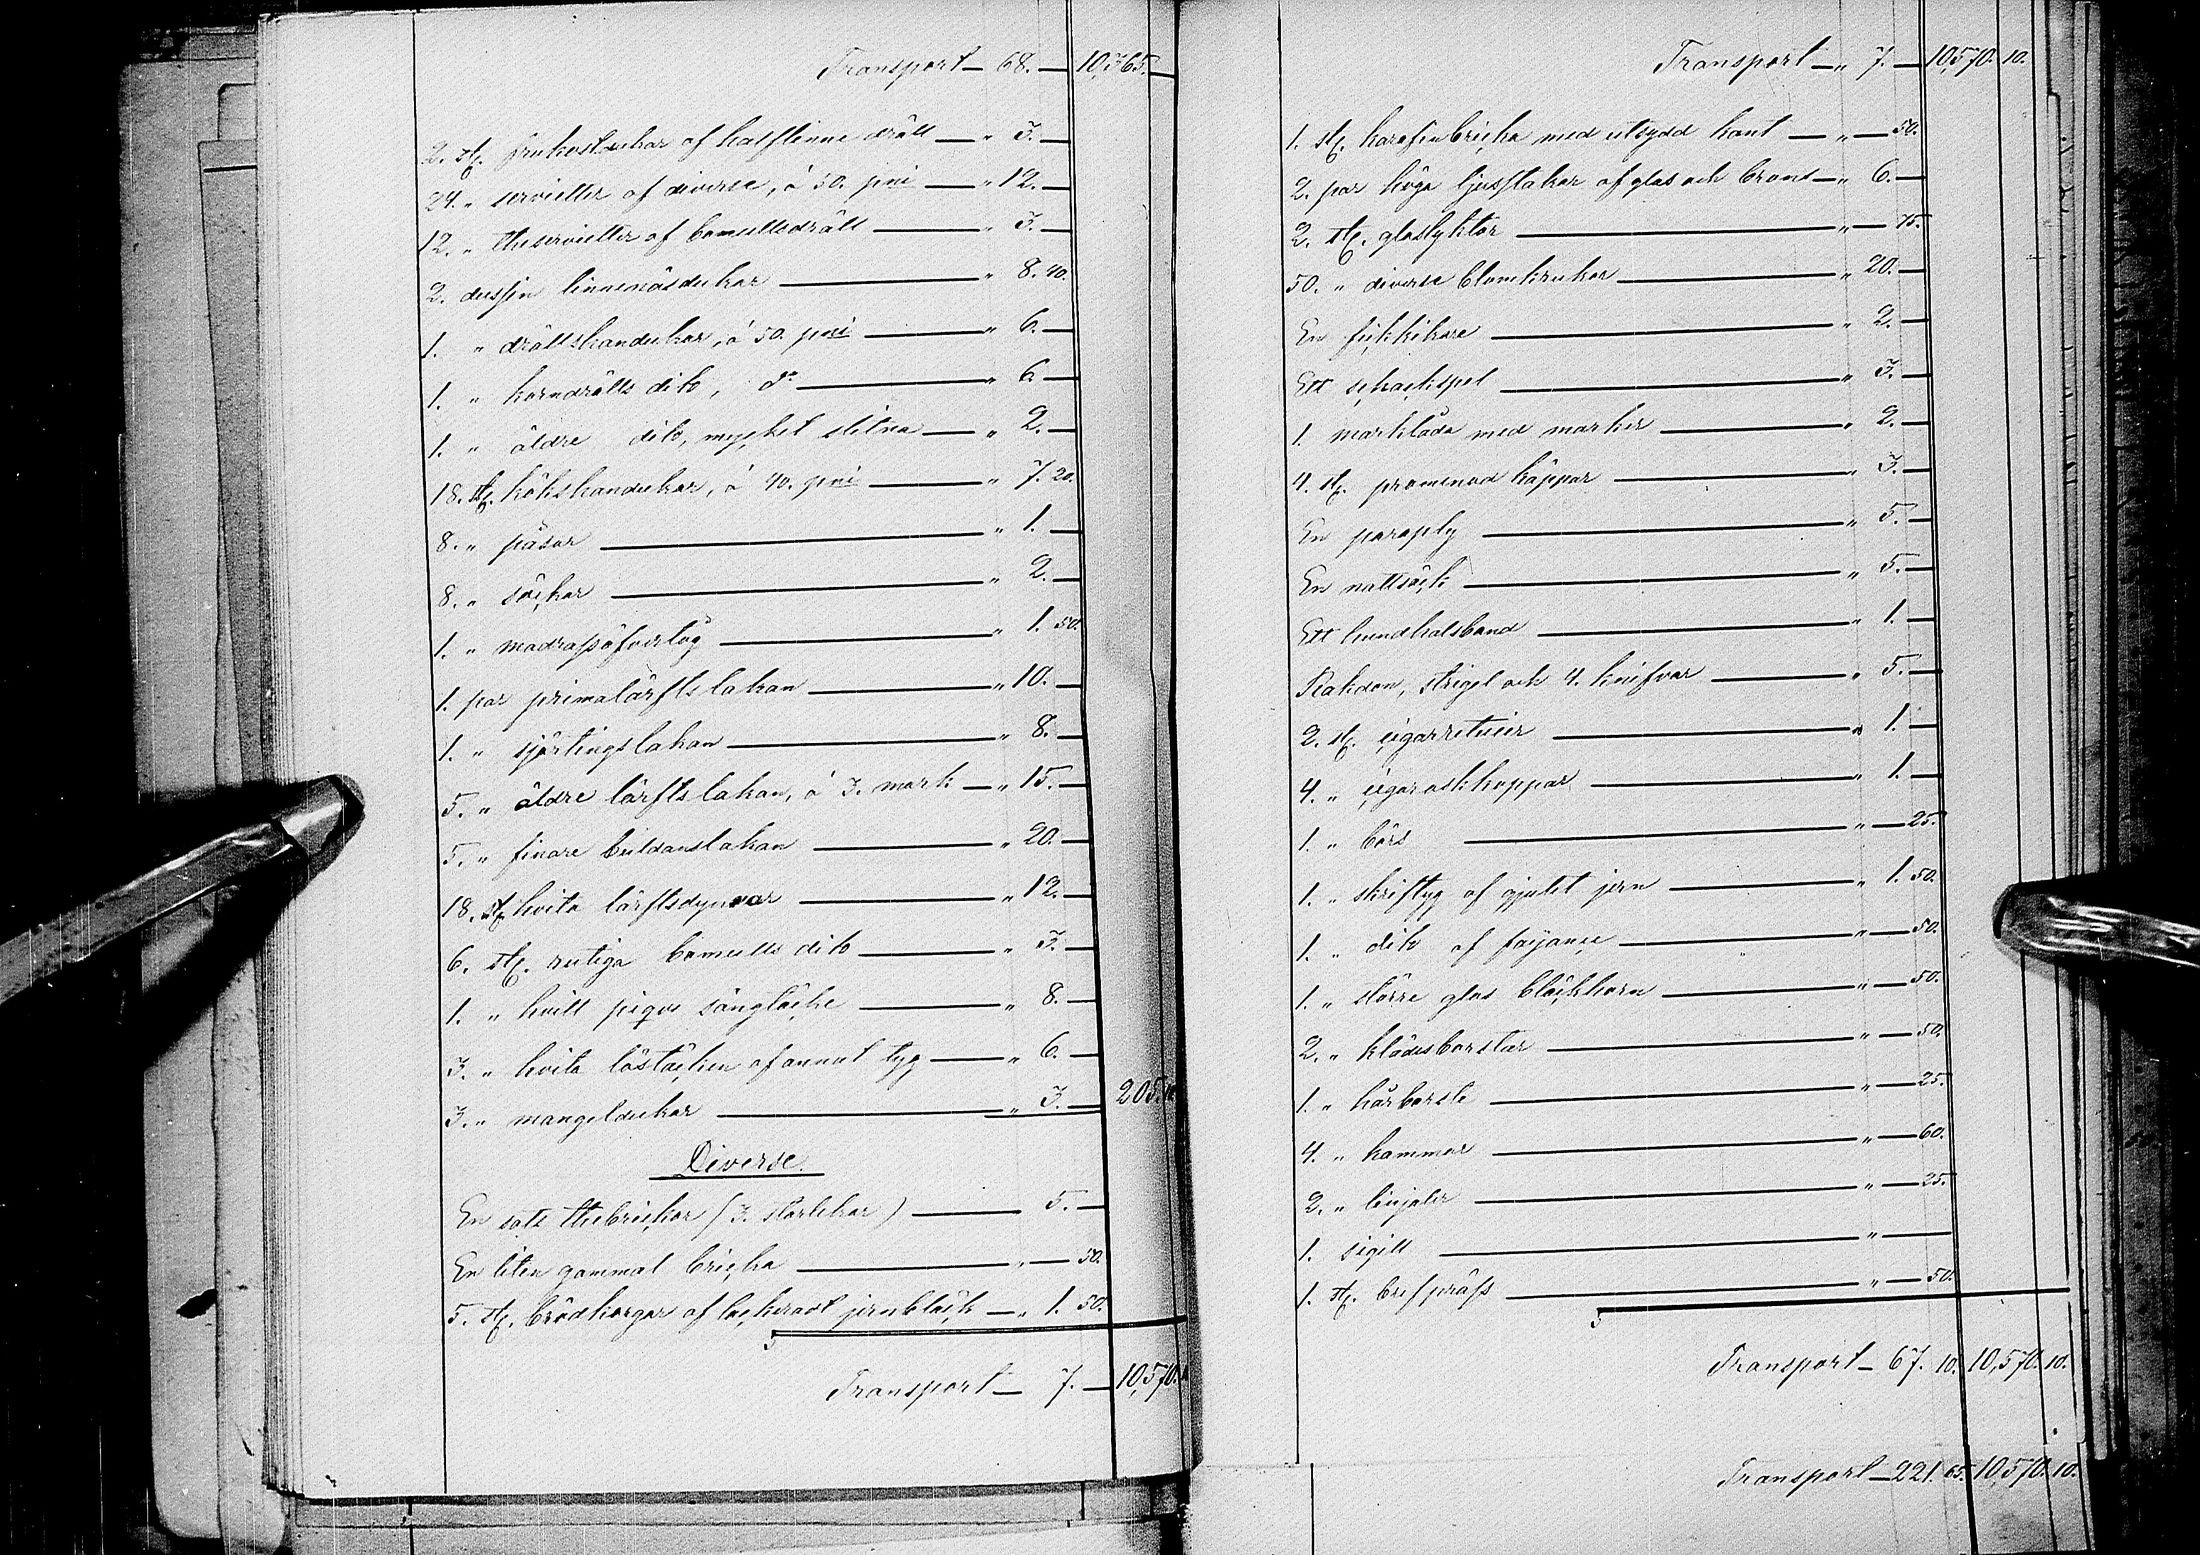 Transport — 68. — 10,365. —
2. st. frukostdukar af halflinne dräll — " 3. —
24. " servietter af diverse, à 50. pni — " 12. —
12. " theservietter af bomullsdräll — " 3. —
2. dussin linnenäsdukar — " 8. 40.
1. " drällshandukar, à 50. pni — " 6. —
1. " korndrälls dito, do — " 6. —
1. " äldre dito, mycket slitna — " 2. —
18. st. kökshandukar, à 40. pni — " 7. 20.
8. " påsar — " 1. —
8. " säckar — " 2. —
1. " madrassöfverlag — " 1. 50.
1. par primalärftslakan — " 10. —
1. " sjörtingslakan — " 8. —
5. " äldre lärftslakan, à 3. mark — " 15. —
5. " finare buldanslakan — " 20. —
18. st. hvita lärftsdynvar — " 12. —
6. st. rutiga bomulls dito — " 3. —
1. " hvitt piqué sängtäcke — " 8. —
3. " hvita löstäcken af annat tyg — " 6. —
3. " mangeldukar — " 3. — 205. 10
Diverse.
En sats thebrickor (3. storlekar) — 5. —
En liten gammal bricka — " — 50.
5. st. brödkorgar af lackeradt jernbläck — " 1. 50.
Transport — 7. — 10,570. 1
Transport — " 7. — 10,570. 10.
1. st. karafinbricka med utsydd kant — " — 50.
2. par höga ljusstakar af glas och brons — " 6. —
2. st. glaslyktor — " — 75.
50. " diverse blomkrukor — " 20. —
En fickkikare — " 2. —
Ett schackspel — " 3. —
1. marklåda med marker — " 2. —
4. st. promenad käppar — " 3. —
En paraply — " 5. —
En nattsäck — " 5. —
Ett hundhalsband — " 1. —
Rakdon, strigel och 4. knifvar — " 5. —
2. st. cigarretuier — " 1. —
4. " cigaraskkoppar — " 1. —
1. " börs — " — 25.
1. " skriftyg af gjutet jern — " 1. 50.
1. " dito af fayance — " — 50.
1. " större glas bläckhorn — " — 50.
2. " klädesborstar — " — 50.
1. " hårborste — " — 25.
4. " kammar — " — 60.
2. " linjaler — " — 25.
1. sigill — " —
1. st. brefpräss — " — 50.
Transport — 67. 10. 10,570. 10.
Transport — 221. 65. 10,570. 10.